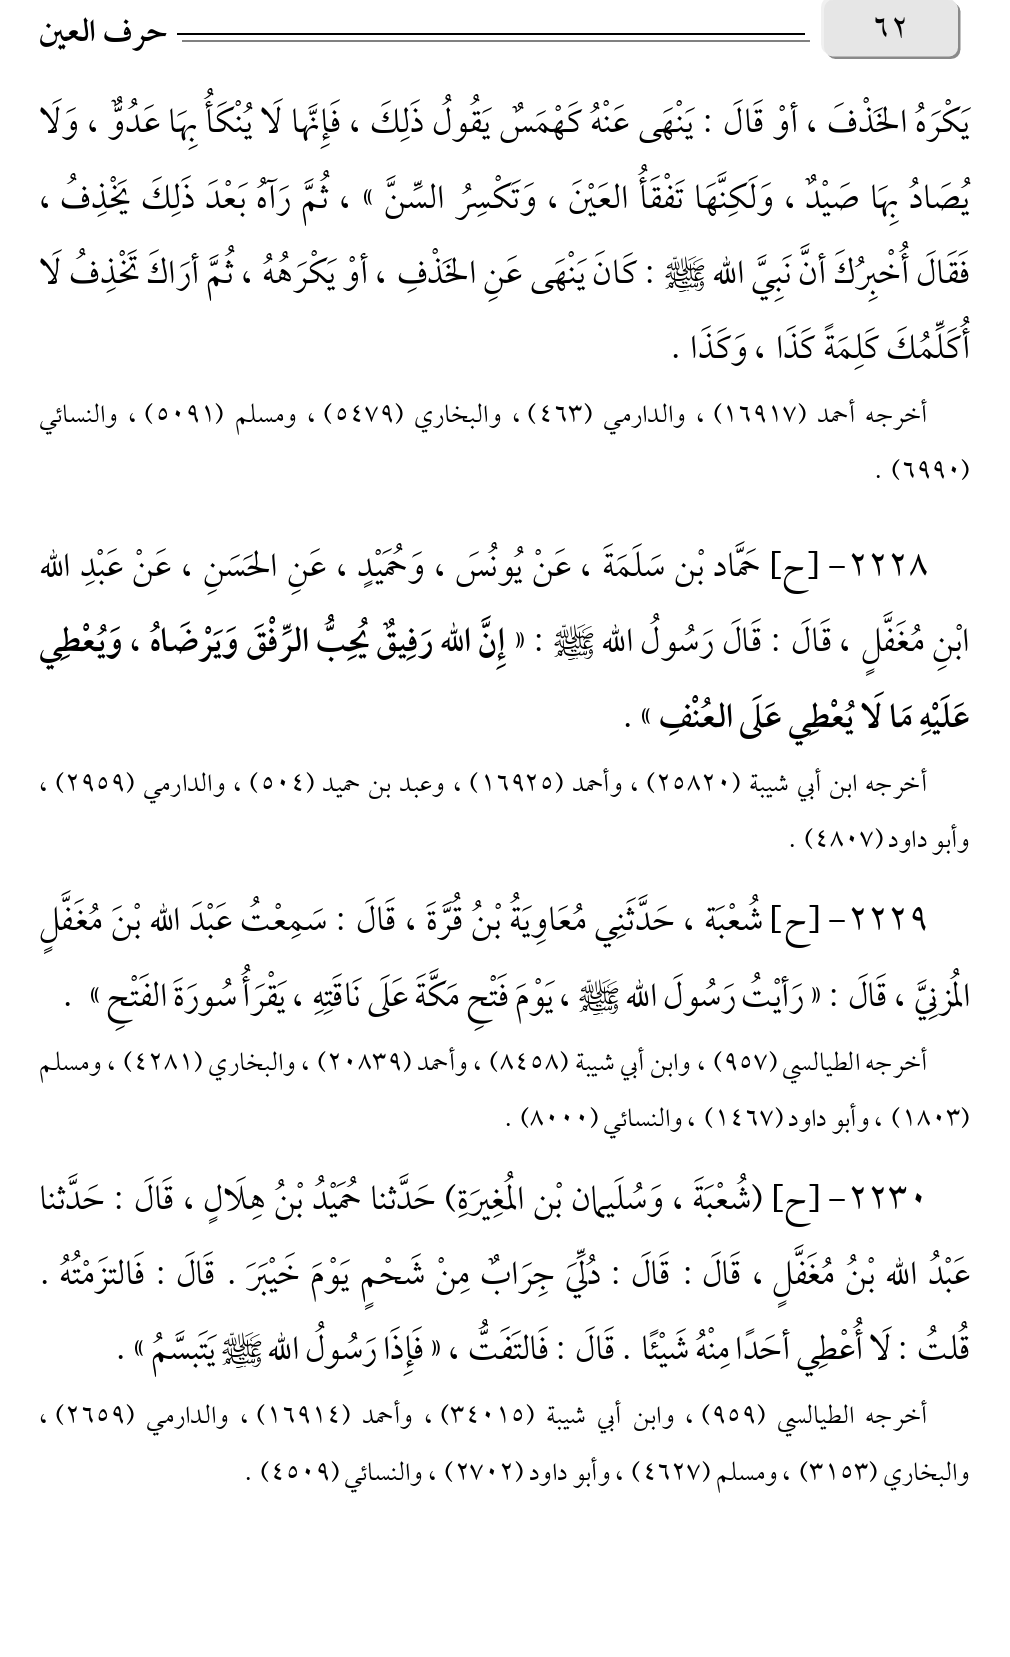 ٦٢
حرف العين
يَكْرَهُ الخَذْفَ ، أوْ قَالَ : يَنْهَى عَنْهُ كَهْمَسٌ يَقُولُ ذَلِكَ ، فَإِنَّها لَا يُنْكَأُ بِهَا عَدُوٌّ ، وَلَا
يُصَادُ بِهَا صَيْدٌ ، وَلَكِنَّهَا تَفْقَأُ العَيْنَ ، وَتَكْسِرُ السِّنَّ » ، ثُمَّ رَآهُ بَعْدَ ذَلِكَ يَخْذِفُ ،
فَقَالَ أُخْبِرُكَ أنَّ نَبِيَّ الله ﷺ : كَانَ يَنْهَى عَنِ الخَذْفِ ، أوْ يَكْرَهُهُ ، ثُمَّ أرَاكَ تَخْذِفُ لَا
أُكَلِّمُكَ كَلِمَةً كَذَا ، وَكَذَا .
أخرجه أحمد (١٦٩١٧) ، والدارمي (٤٦٣) ، والبخاري (٥٤٧٩) ، ومسلم (٥٠٩١) ، والنسائي
(٦٩٩٠) .
٢٢٢٨- [ح] حَمَّاد بْن سَلَمَةَ ، عَنْ يُونُسَ ، وَحُمَيْدٍ ، عَنِ الحَسَنِ ، عَنْ عَبْدِ الله
ابْنِ مُغَفَّلٍ ، قَالَ : قَالَ رَسُولُ الله ﷺ : « إِنَّ الله رَفِيقٌ يُحِبُّ الرِّفْقَ وَيَرْضَاهُ ، وَيُعْطِي
عَلَيْهِ مَا لَا يُعْطِي عَلَى العُنْفِ » .
أخرجه ابن أبي شيبة (٢٥٨٢٠) ، وأحمد (١٦٩٢٥) ، وعبد بن حميد (٥٠٤) ، والدارمي (٢٩٥٩) ،
وأبو داود (٤٨٠٧) .
٢٢٢٩- [ح] شُعْبَة ، حَدَّثَنِي مُعَاوِيَةُ بْنُ قُرَّةَ ، قَالَ : سَمِعْتُ عَبْدَ الله بْنَ مُغَفَّلٍ
المُزنِيَّ ، قَالَ : « رَأيْتُ رَسُولَ الله ﷺ ، يَوْمَ فَتْحِ مَكَّةَ عَلَى نَاقَتِهِ ، يَقْرَأُ سُورَةَ الفَتْحِ » .
أخرجه الطيالسي (٩٥٧) ، وابن أبي شيبة (٨٤٥٨) ، وأحمد (٢٠٨٣٩) ، والبخاري (٤٢٨١) ، ومسلم
(١٨٠٣) ، وأبو داود (١٤٦٧) ، والنسائي (٨٠٠٠) .
٢٢٣٠- [ح] (شُعْبَةَ ، وَسُلَيمان بْن المُغِيرَةِ) حَدَّثنا حُمَيْدُ بْنُ هِلَالٍ ، قَالَ : حَدَّثنا
عَبْدُ الله بْنُ مُغَفَّلٍ ، قَالَ : قَالَ : دُلِّيَ جِرَابٌ مِنْ شَحْمٍ يَوْمَ خَيْبَرَ . قَالَ : فَالتزَمْتُهُ .
قُلتُ : لَا أُعْطِي أحَدًا مِنْهُ شَيْئًا . قَالَ : فَالتَفَتُّ ، « فَإِذَا رَسُولُ الله ﷺ يَتَبسَّمُ » .
أخرجه الطيالسي (٩٥٩) ، وابن أبي شيبة (٣٤٠١٥) ، وأحمد (١٦٩١٤) ، والدارمي (٢٦٥٩) ،
والبخاري (٣١٥٣) ، ومسلم (٤٦٢٧) ، وأبو داود (٢٧٠٢) ، والنسائي (٤٥٠٩) .